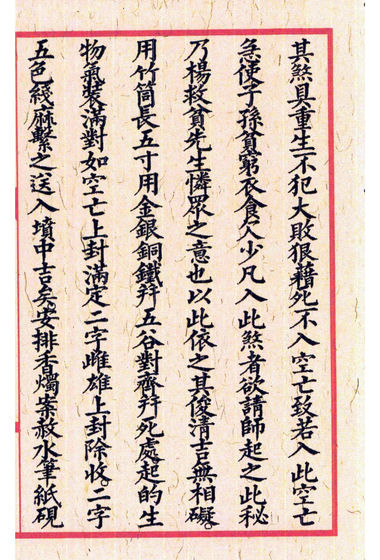 其煞具重生不犯大敗狠藉死不入空亡致若入此空亡
急使子孫貧窮衣食欠少凡入此煞者欲請師起之此秘
乃楊救貧先生憐眾之意也以此依之其後清吉無相礙。
用竹筒長五寸用金銀銅鐵幷五谷對齊幷死處起的生
物氣裝滿對如空亡上封滿定二字雌雄上封除收。二字
五色綫麻繫之送入墳中吉矣。安排香燭柴赦水筆紙硯